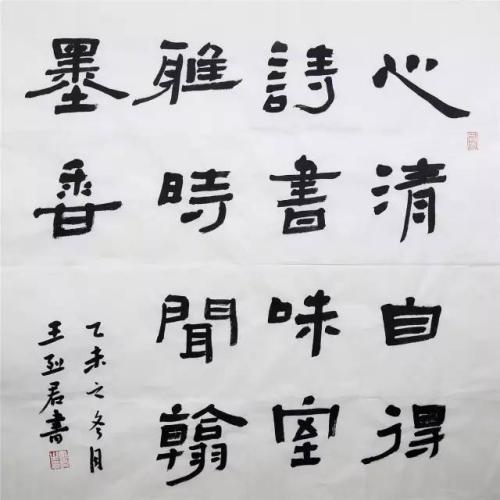 心清自得
詩書味室
雅時聞翰
墨香
乙未之冬月
王君書